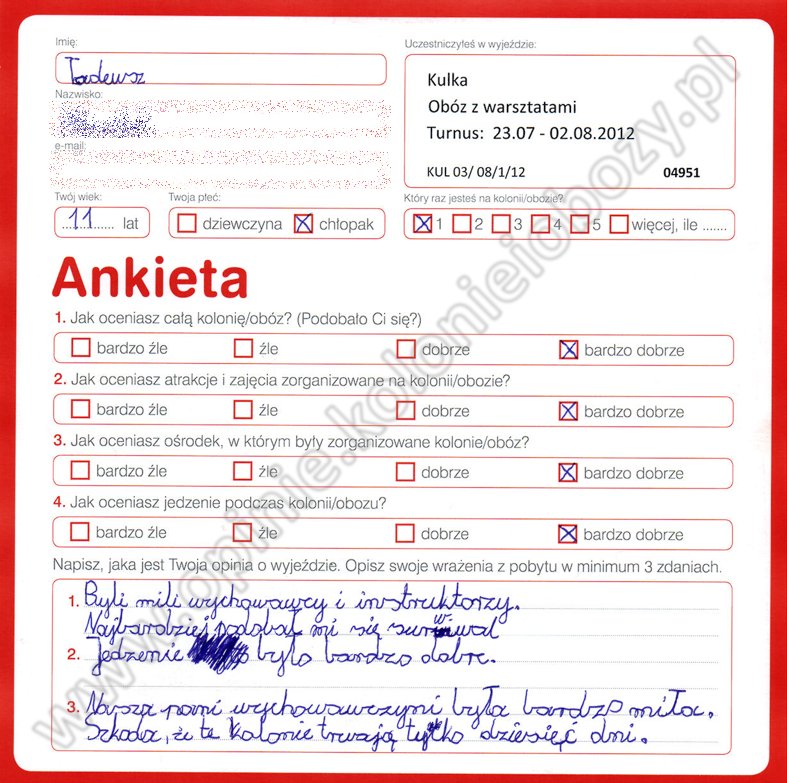 Imię:
Tadeusz
Nazwisko:
e-mail:
Uczestniczyłeś w wyjeździe:
Kulka
Obóz z warsztatami
Turnus: 23.07 - 02.08.2012
KUL 03/ 08/1/12 04951
Twój wiek:
11 lat
Twoja płeć:
dziewczyna chłopak
Który raz jesteś na kolonii/obozie?
1 2 3 4 5 więcej, ile .......
Ankieta
1. Jak oceniasz całą kolonię/obóz? (Podobało Ci się?)
bardzo źle źle dobrze bardzo dobrze
2. Jak oceniasz atrakcje i zajęcia zorganizowane na kolonii/obozie?
bardzo źle źle dobrze bardzo dobrze
3. Jak oceniasz ośrodek, w którym były zorganizowane kolonie/obóz?
bardzo źle źle dobrze bardzo dobrze
4. Jak oceniasz jedzenie podczas kolonii/obozu?
bardzo źle źle dobrze bardzo dobrze
Napisz, jaka jest Twoja opinia o wyjeździe. Opisz swoje wrażenia z pobytu w minimum 3 zdaniach.
1. Byli mili wychowawcy i instruktorzy.
Najbardziej podobał mi się surwiwal
2. Jedzenie było bardzo dobre.
3. Nasza pani wychowawczyni była bardzo miła.
Szkoda, że te kolonie trwają tylko dziesięć dni.
www.opinie.kolonieiobozy.pl